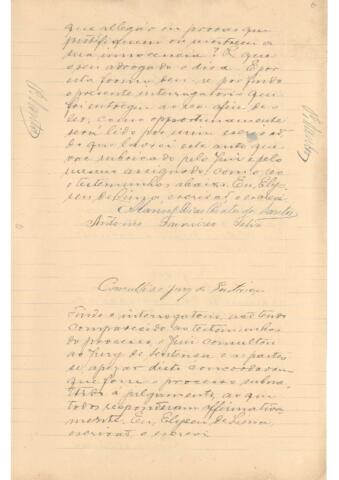 que allegár ou provas que
justifiquem ou mostrem a
sua innocencia? R. que
o seu advogado o dirá. E por
esta forma deu-se por findo
o presente interrogatorio que
foi entregue ao réo afim de o
ler, como opportunamente
será lido por mim escrivão
do que lavrei este auto que
vae rubricado pelo Juiz e pelo
mesmo assignado, com o réo
e testemunhas abaixo. Eu,
escrivão o escrevi
Manoel dos Santos
Antonio Silva
Consulta ao Jury de Sentença
Findo o interrogatorio, não tendo
comparecido as testemunhas
do processo, o Juiz consultou
ao Jury de Sentença e as partes
se apezar disto concordavam
que fosse o processo submet-
tido a julgamento, ao que
todos responderam affirmativa-
mente. Eu, de
escrivão, o escrevi